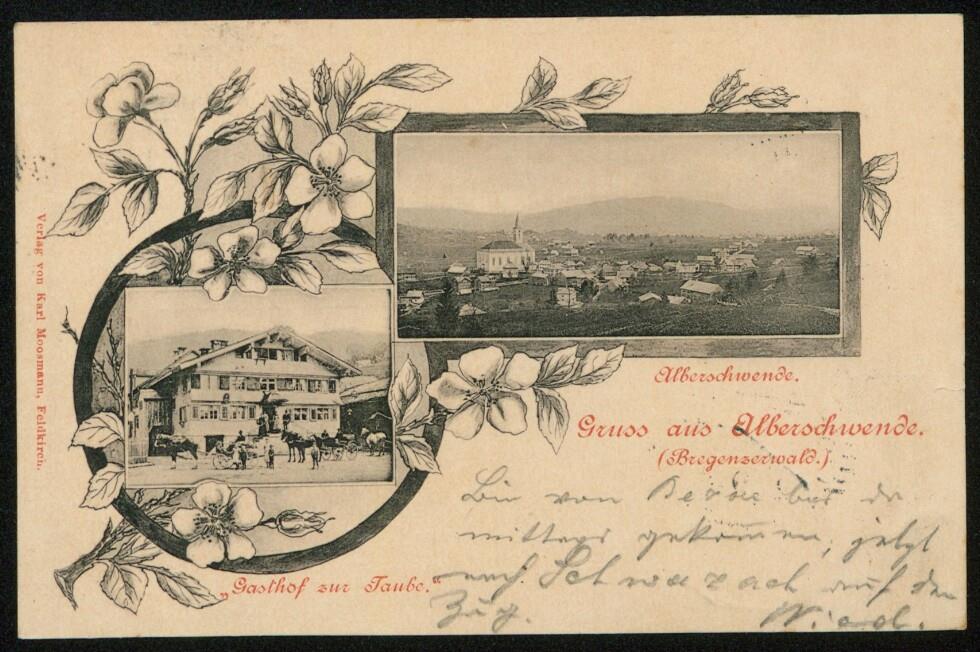 Verlag von Karl Moosmann, Feldkirch.
Alberschwende.
Gruss aus Alberschwende.
(Bregenzerwald.)
„Gasthof zur Taube.“
Bin von bis da
mittags gekommen, jetzt
nach Schwarzach auf den
Zug.